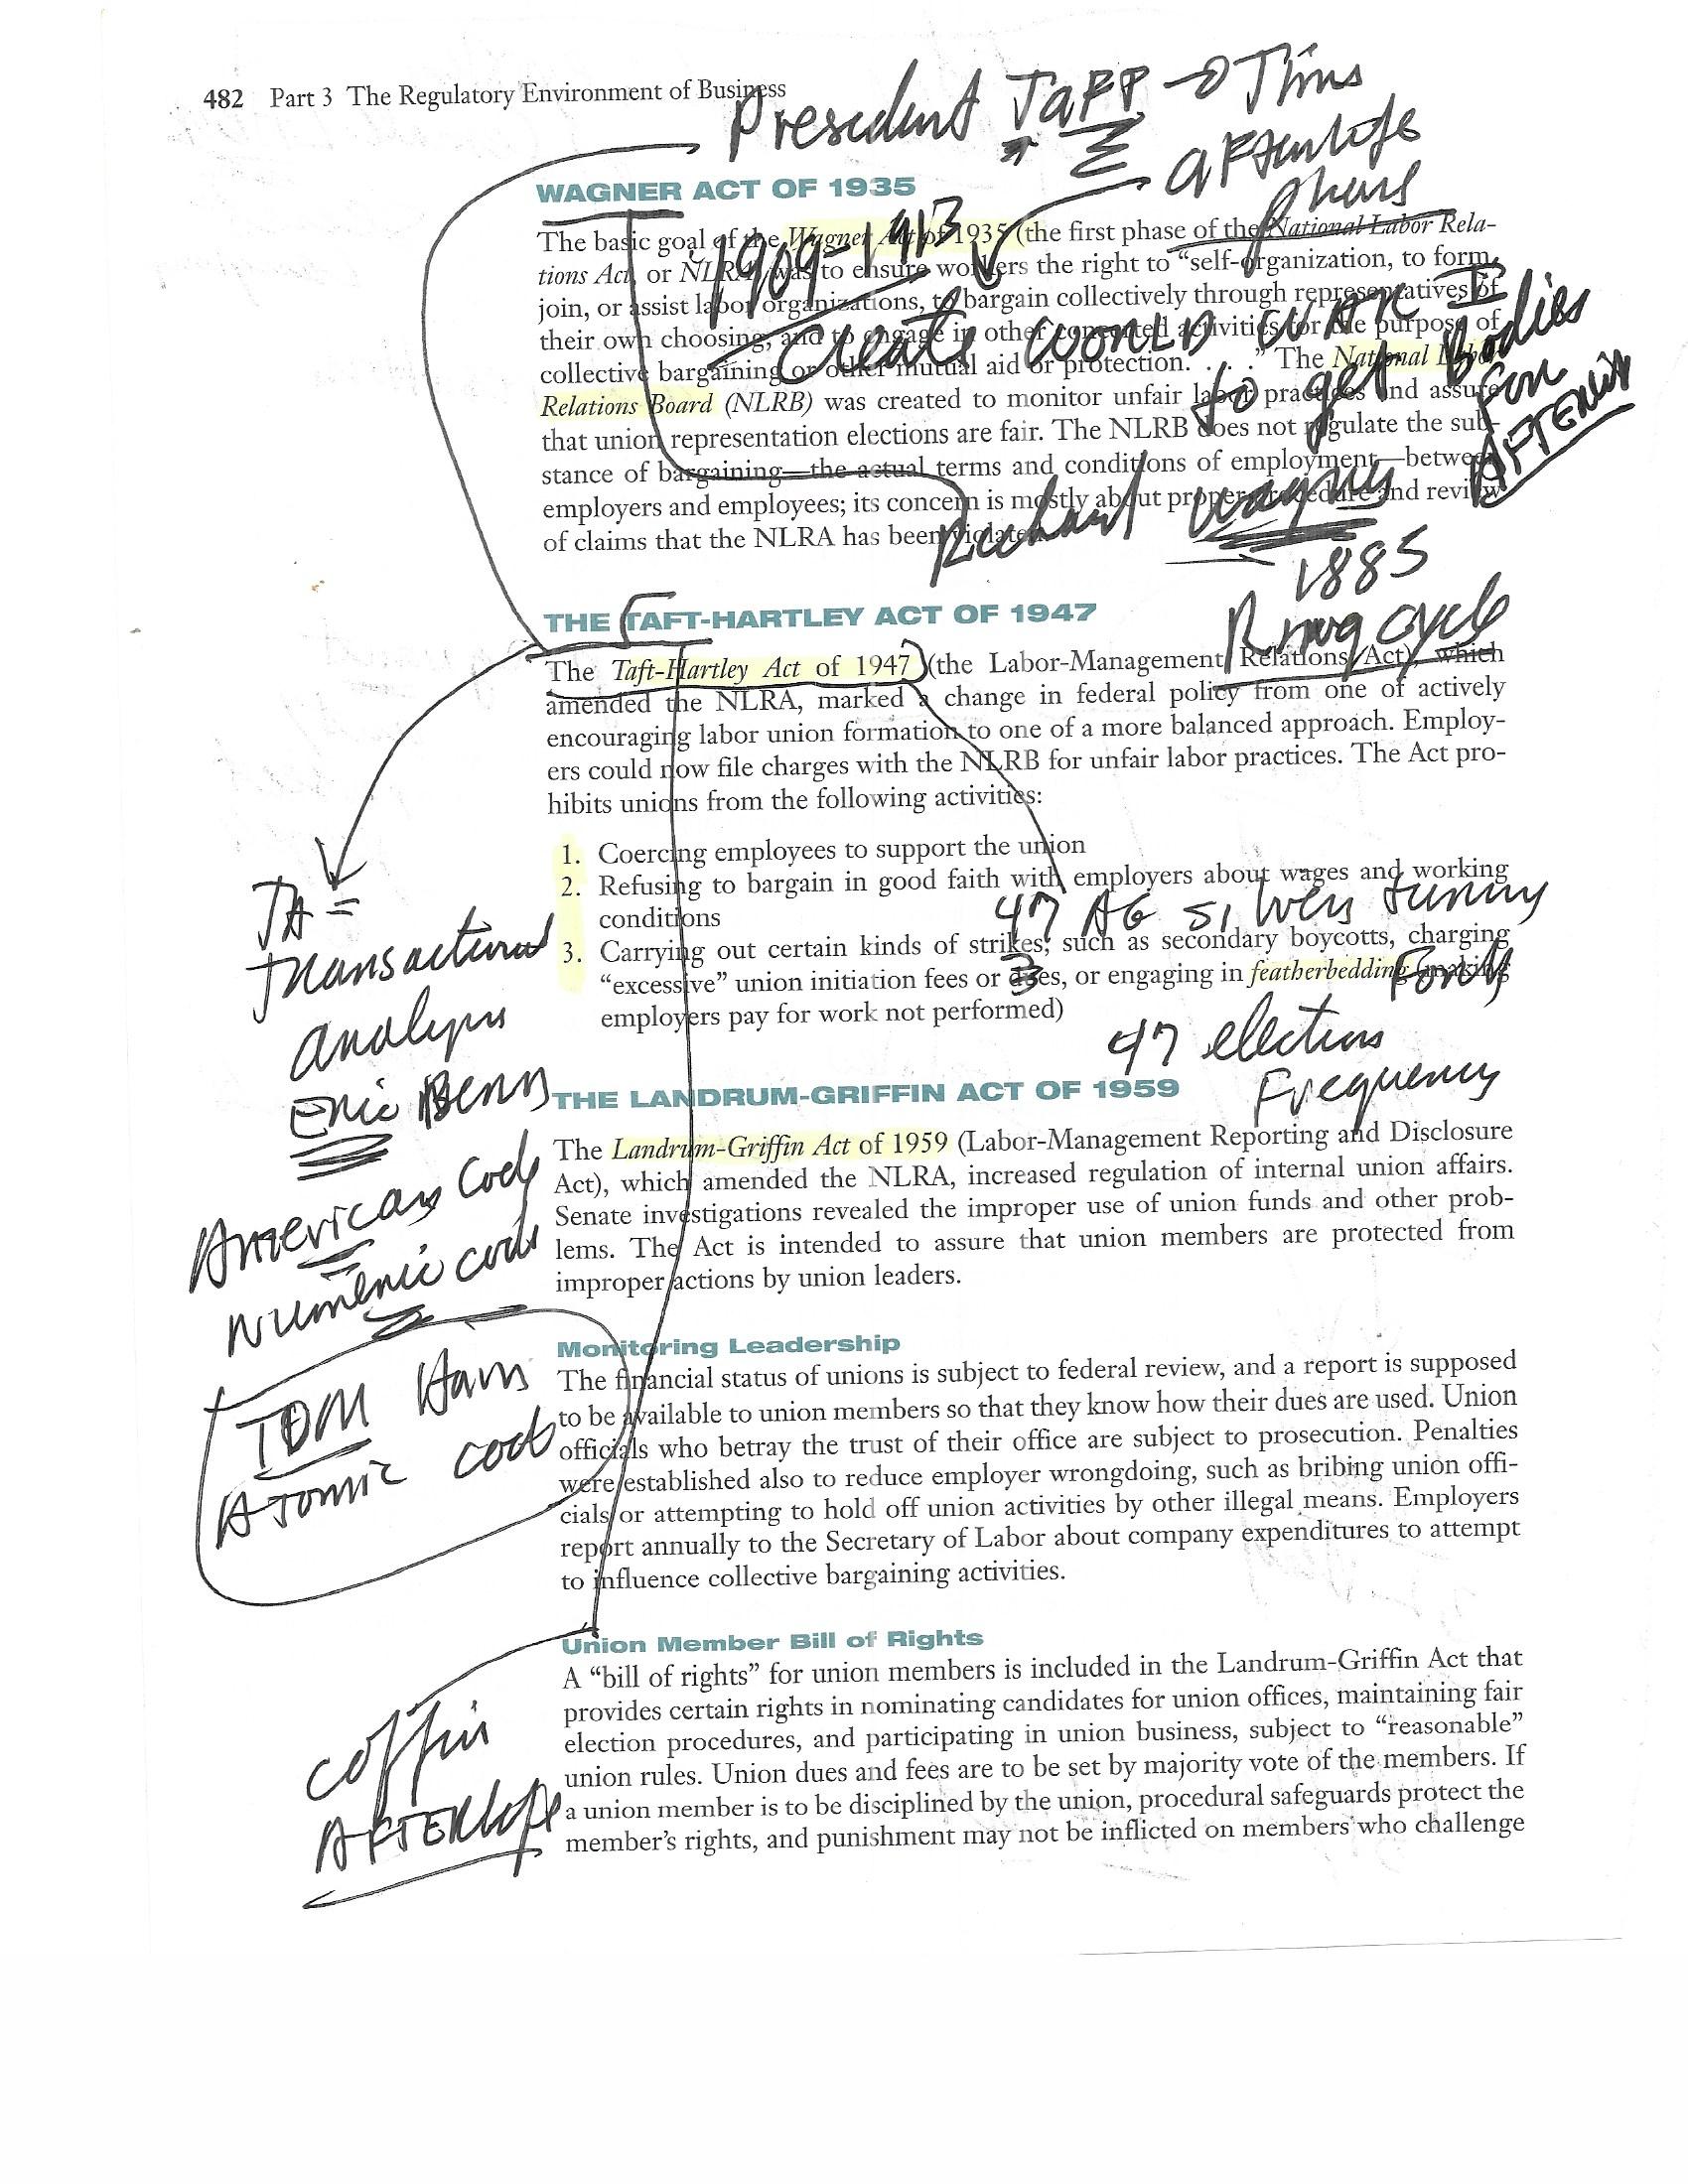 482 Part 3 The Regulatory Environment of Business
President Taff
afterlife
WAGNER ACT OF 1935
The basic goal of the Wagner Act of 1935 (the first phase of the National Labor Rela-
tions Act, or NLRA) was to ensure workers the right to “self-organization, to form,
join, or assist labor organizations, to bargain collectively through representatives of
their own choosing, and to engage in other concerted activities for the purpose of
collective bargaining or other mutual aid or protection. . . .” The National Labor
Relations Board (NLRB) was created to monitor unfair labor practices and assure
that union representation elections are fair. The NLRB does not regulate the sub-
stance of bargaining—the actual terms and conditions of employment—between
employers and employees; its concern is mostly about proper procedure and review
of claims that the NLRA has been violated.
1909-1913
create WORLD WAR I
to get Bodies
for
AFTERLIFE
Richard Wagner
1885
Ring cycle
THE TAFT-HARTLEY ACT OF 1947
The Taft-Hartley Act of 1947 (the Labor-Management Relations Act), which
amended the NLRA, marked a change in federal policy from one of actively
encouraging labor union formation to one of a more balanced approach. Employ-
ers could now file charges with the NLRB for unfair labor practices. The Act pro-
hibits unions from the following activities:
1. Coercing employees to support the union
2. Refusing to bargain in good faith with employers about wages and working
conditions
3. Carrying out certain kinds of strikes, such as secondary boycotts, charging
“excessive” union initiation fees or dues, or engaging in featherbedding (making
employers pay for work not performed)
47 AG silver
47 election
Frequency
TA =
Transactional
analysis
Eric Bern
American Code
Numeric code
TOM
Atomic code
THE LANDRUM-GRIFFIN ACT OF 1959
The Landrum-Griffin Act of 1959 (Labor-Management Reporting and Disclosure
Act), which amended the NLRA, increased regulation of internal union affairs.
Senate investigations revealed the improper use of union funds and other prob-
lems. The Act is intended to assure that union members are protected from
improper actions by union leaders.
Monitoring Leadership
The financial status of unions is subject to federal review, and a report is supposed
to be available to union members so that they know how their dues are used. Union
officials who betray the trust of their office are subject to prosecution. Penalties
were established also to reduce employer wrongdoing, such as bribing union offi-
cials or attempting to hold off union activities by other illegal means. Employers
report annually to the Secretary of Labor about company expenditures to attempt
to influence collective bargaining activities.
Union Member Bill of Rights
A “bill of rights” for union members is included in the Landrum-Griffin Act that
provides certain rights in nominating candidates for union offices, maintaining fair
election procedures, and participating in union business, subject to “reasonable”
union rules. Union dues and fees are to be set by majority vote of the members. If
a union member is to be disciplined by the union, procedural safeguards protect the
member’s rights, and punishment may not be inflicted on members who challenge
coffin
AFTERlife